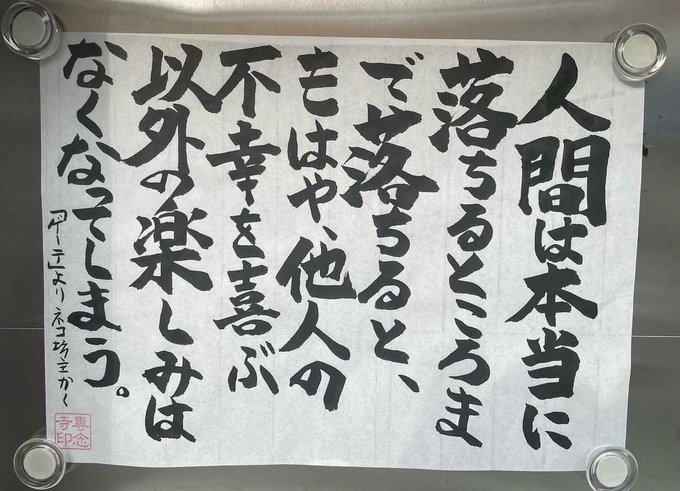 人間は本当に
落ちるところま
で落ちると、
もはや、他人の
不幸を喜ぶ
以外の楽しみは
なくなってしまう。
「ゲーテ」よりネコ坊主かく
専念
寺印